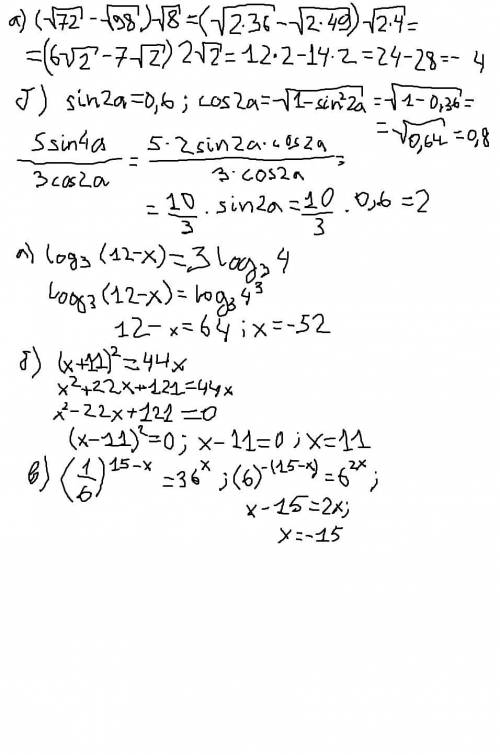 а) (√72 - √98)√8 = (√2·36 - √2·49)√2·4 =
= (6√2 - 7√2) 2√2 = 12·2 - 14·2 = 24 - 28 = - 4
б) sin2a = 0,6 ; cos2a = √1-sin²2a = √1-0,36 =
= √0,64 = 0,8
5sin4a / 3cos2a = 5·2sin2a·cos2a / 3·cos2a =
= 10/3 · sin2a = 10/3 · 0,6 = 2
а) log₃(12-x) = 3log₃4
log₃(12-x) = log₃4³
12 - x = 64 ; x = -52
б) (x+11)² = 44x
x² + 22x + 121 = 44x
x² - 22x + 121 = 0
(x-11)² = 0 ; x - 11 = 0 ; x = 11
в) (1/6)^(15-x) = 36^x ; (6)^-(15-x) = 6^2x ;
x - 15 = 2x ;
x = -15